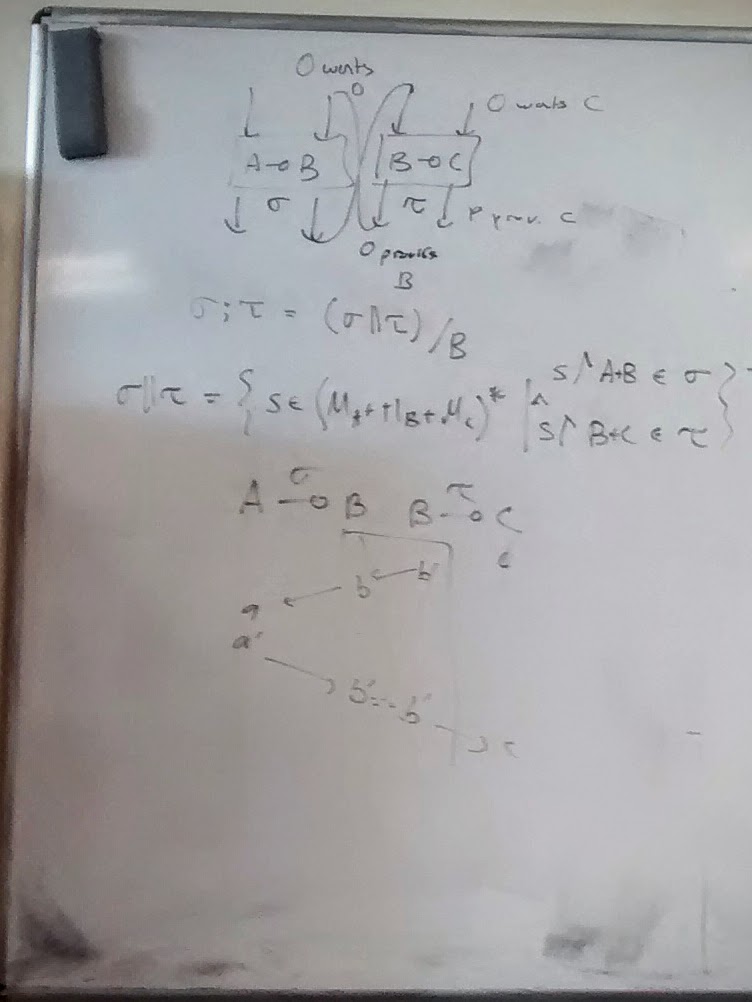 O wants
O
O wants C
A ⊸ B B ⊸ C
σ τ P prov. C
O provides
B
σ ; τ = (σ || τ) / B
σ || τ = { S ∈ (M_A + M_B + M_C)* | S ↾ A+B ∈ σ ∧ S ↾ B+C ∈ τ }
σ τ
A ⊸ B B ⊸ C
c
b b
a
a'
b' b'
c